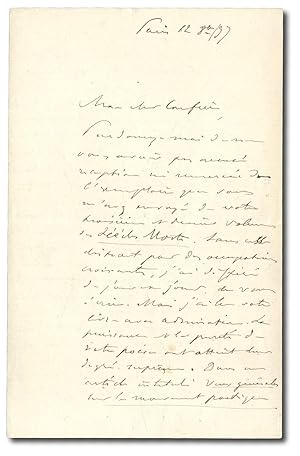 Paris 12 8bre/97
Mon cher Confrère
Pardonnez-moi de ne
vous avoir pas accusé
réception ni remercié de
l'exemplaire que vous
m'avez envoyé de votre
troisième et dernier volume
des Siècles Morts. Sans cesse
distrait par des occupations
croissantes, j'ai différé
de jour en jour de vous
écrire. Mais j'ai lu votre
livre avec admiration. La
puissance et la pureté de
votre poésie ont atteint leur
degré suprême. Dans un
article intitulé Vues générales
sur le mouvement poétique